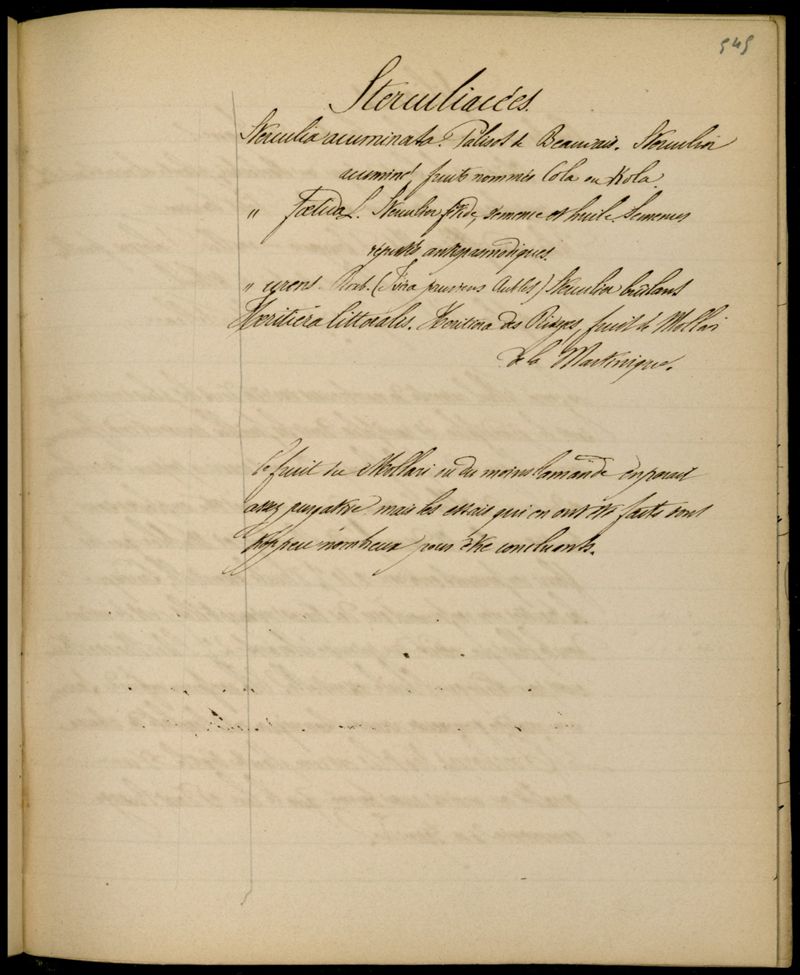 545
Sterculiacées.
Sterculia acuminata. Palisot de Beauvais. Sterculier
acuminé, fruits nommés Cola ou Kola.
" Fœtida L. Sterculier fétide, semence et huile. Semences
réputés antispasmodiques.
" urens. Roxb. (Ivira pruriens Aublet) Sterculier brûlant
Heritiera littoralis. Heritiera des Rivages, fruit de Mollari
de la Martinique.
Le fruit du Mollari ou du moins l'amande en parait
assez purgative mais les essais qui en ont été faits sont
trop peu nombreux pour être concluants.